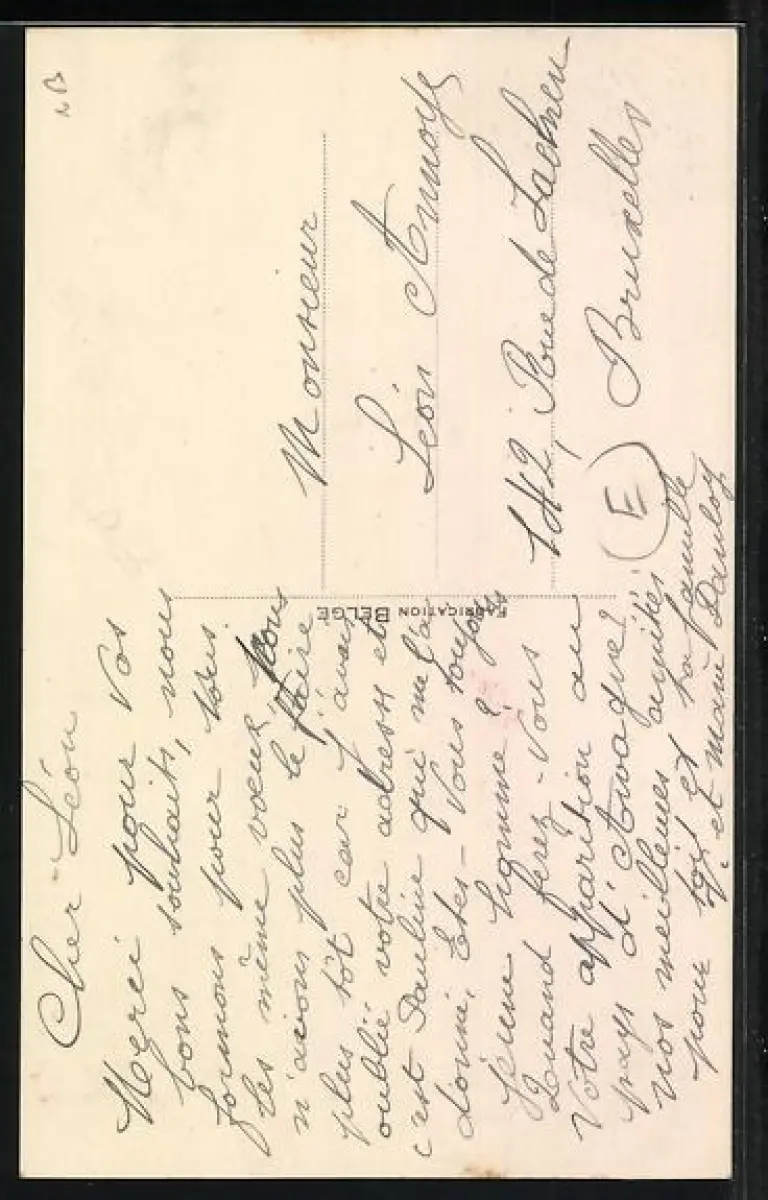 Cher Léon
Merci pour vos
bons souhaits, nous
formons pour vous
les même vœux nous
n'avions plus le faire
plus tôt car j'avais
oublié votre adresse et
c'est Pauline qui me l'a
donné. Êtes-Vous toujours
jeune homme?
Quand ferez-Vous
Votre apparition au
pays d'Awagne?
nos meilleures amitiés
pour toi et ta famille
et
FABRICATION BELGE
Monsieur
Léon Annoye
142, Rue de Laeken
(E) Bruxelles